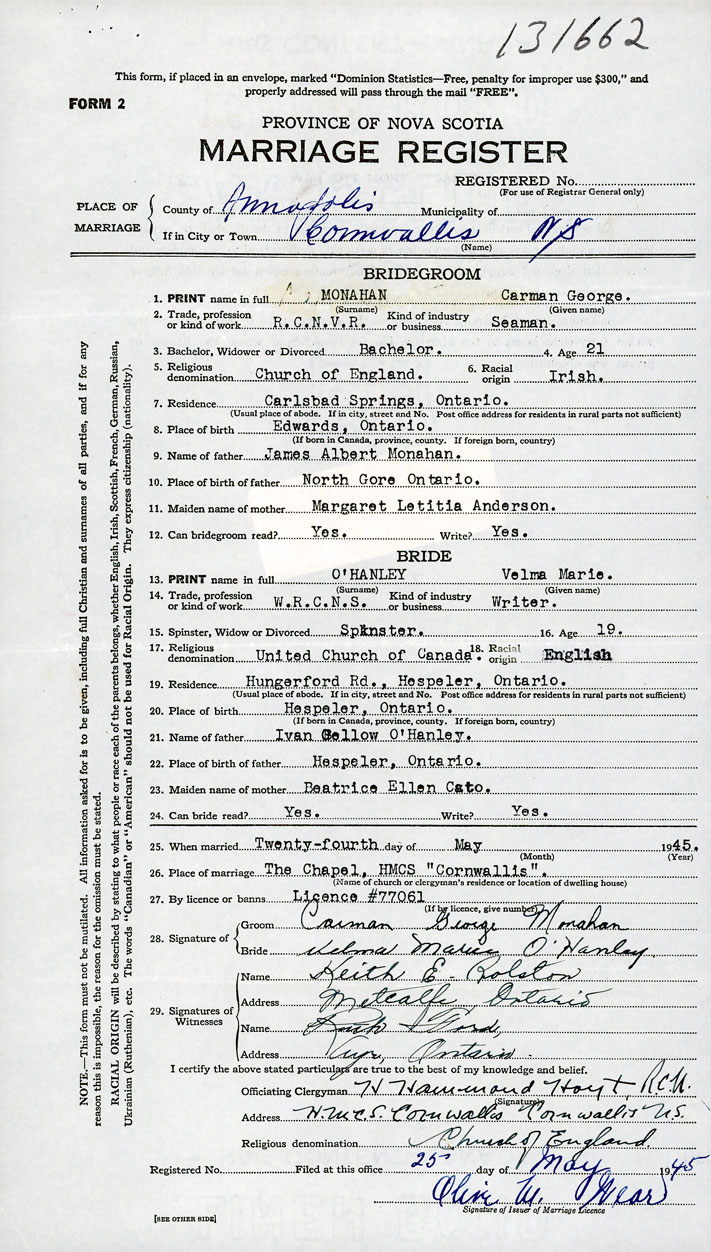 131662
This form, if placed in an envelope, marked “Dominion Statistics—Free, penalty for improper use $300,” and
properly addressed will pass through the mail “FREE”.
FORM 2
PROVINCE OF NOVA SCOTIA
MARRIAGE REGISTER
REGISTERED No.
(For use of Registrar General only)
PLACE OF MARRIAGE
County of Annapolis Municipality of
If in City or Town Cornwallis NS
(Name)
BRIDEGROOM
1. PRINT name in full MONAHAN Carman George.
(Surname) (Given name)
2. Trade, profession or kind of work R.C.N.V.R. Kind of industry or business Seaman.
3. Bachelor, Widower or Divorced Bachelor. 4. Age 21
5. Religious denomination Church of England. 6. Racial origin Irish.
7. Residence Carlsbad Springs, Ontario.
(Usual place of abode. If in city, street and No. Post office address for residents in rural parts not sufficient)
8. Place of birth Edwards, Ontario.
(If born in Canada, province, county. If foreign born, country)
9. Name of father James Albert Monahan.
10. Place of birth of father North Gore Ontario.
11. Maiden name of mother Margaret Letitia Anderson.
12. Can bridegroom read? Yes. Write? Yes.
BRIDE
13. PRINT name in full O'HANLEY Velma Marie.
(Surname) (Given name)
14. Trade, profession or kind of work W.R.C.N.S. Kind of industry or business Writer.
15. Spinster, Widow or Divorced Spinster. 16. Age 19.
17. Religious denomination United Church of Canada. 18. Racial origin English
19. Residence Hungerford Rd., Hespeler, Ontario.
(Usual place of abode. If in city, street and No. Post office address for residents in rural parts not sufficient)
20. Place of birth Hespeler, Ontario.
(If born in Canada, province, county. If foreign born, country)
21. Name of father Ivan Gellow O'Hanley.
22. Place of birth of father Hespeler, Ontario.
23. Maiden name of mother Beatrice Ellen Cato.
24. Can bride read? Yes. Write? Yes.
25. When married Twenty-fourth day of May 1945.
(Month) (Year)
26. Place of marriage The Chapel, HMCS "Cornwallis".
(Name of church or clergyman's residence or location of dwelling house)
27. By licence or banns Licence #77061
(If by licence, give number)
28. Signature of
Groom Carman George Monahan
Bride Velma Marie O'Hanley
29. Signatures of Witnesses
Name Keith E. Rolston
Address Metcalfe Ontario
Name Ford,
Address Ayr, Ontario.
I certify the above stated particulars are true to the best of my knowledge and belief.
Officiating Clergyman H Hammond Hoyt, R.C.N.
(Signature)
Address H.M.C.S. Cornwallis Cornwallis N.S.
Religious denomination Church of England.
Registered No. Filed at this office 25 day of May 1945
Olive M. Wear
Signature of Issuer of Marriage Licence
[SEE OTHER SIDE]
NOTE.—This form must not be mutilated. All information asked for is to be given, including full Christian and surnames of all parties, and if for any
reason this is impossible, the reason for the omission must be stated.
RACIAL ORIGIN will be described by stating to what people or race each of the parents belongs, whether English, Irish, Scottish, French, German, Russian,
Ukrainian (Ruthenian), etc. The words “Canadian” or “American” should not be used for Racial Origin. They express citizenship (nationality).